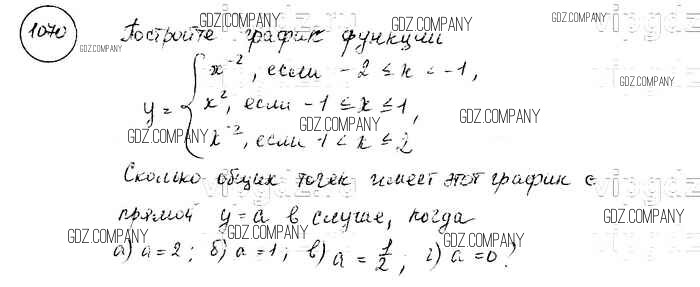 1070 Постройте график функции
y = { x⁻², если -2 ≤ x < -1,
x², если -1 ≤ x ≤ 1,
x⁻², если 1 < x ≤ 2
Сколько общих точек имеет этот график с
прямой y=a в случае, когда
а) a=2; б) a=1; в) a = 1/2; г) a=0?
GDZ.COMPANY
GDZ.COMPANY
GDZ.COMPANY
GDZ.COMPANY
GDZ.COMPANY
GDZ.COMPANY
GDZ.COMPANY
GDZ.COMPANY
GDZ.COMPANY
GDZ.COMPANY
GDZ.COMPANY
GDZ.COMPANY
GDZ.COMPANY
GDZ.COMPANY